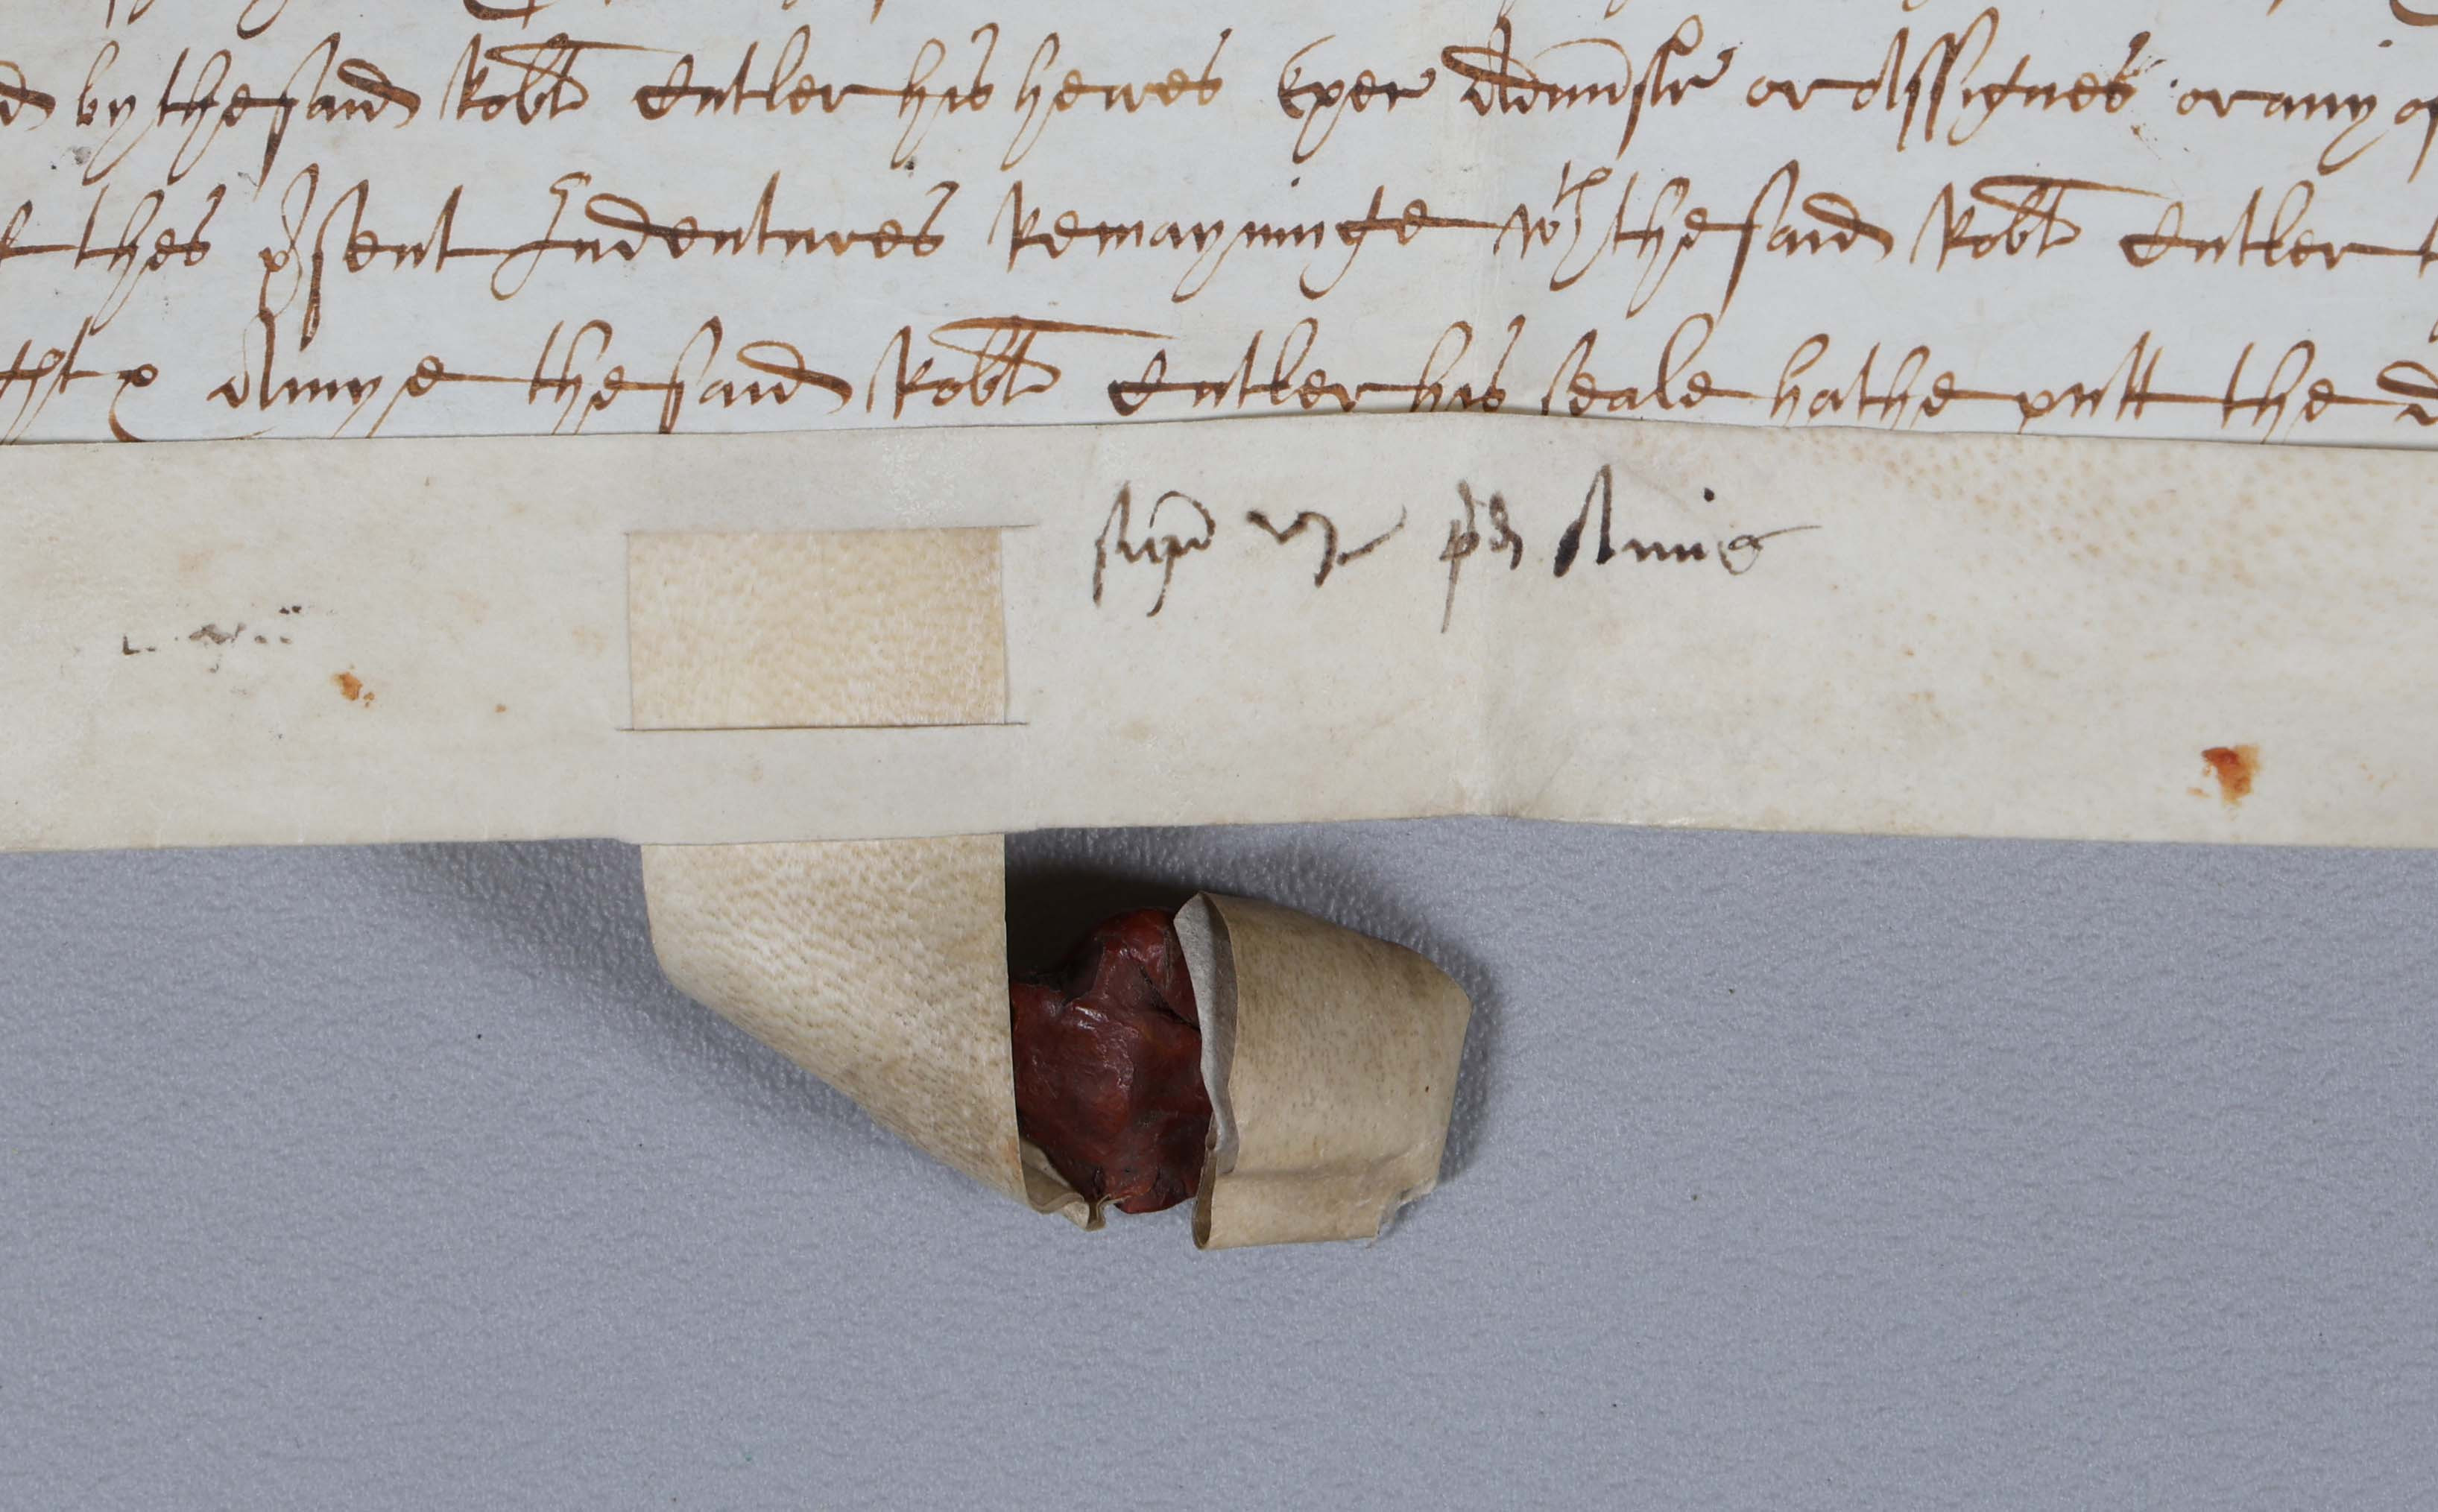 d by the said Robt Cutler his heires Exer Adminstr or Assignes or any of
thes psent Indentures Remayninge wth the said Robt Cutler
Amye the said Robt Cutler his seale hathe putt the
Amis